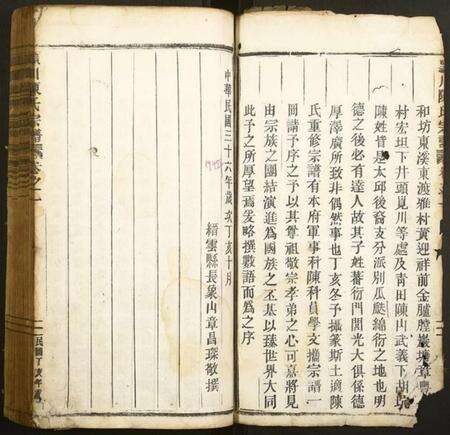 和坊東溪東渡雅村黃迎祥前金臚膛巖
村宏坦下井頭見川等處及青田陳山武義下
陳姓皆是太邱後裔支分派別瓜瓞綿衍之地也明
德之後必有達人故其子姓蕃衍門閥光大俱係德
厚澤廣所致非偶然事也丁亥冬予攝篆斯土適陳
氏重修宗譜有本府軍事科陳科員學文攜宗譜一
圖請予序之予以其尊祖敬宗孝弟之心可嘉將見
由宗族之團結演進為國族之丕基以臻世界大同
此予之所厚望焉爰略撰數語而為之序
中華民國三十六年歲次丁亥十月
縉雲縣長象山章昌琛敬撰
川陳氏宗譜 卷之一
民國丁亥年